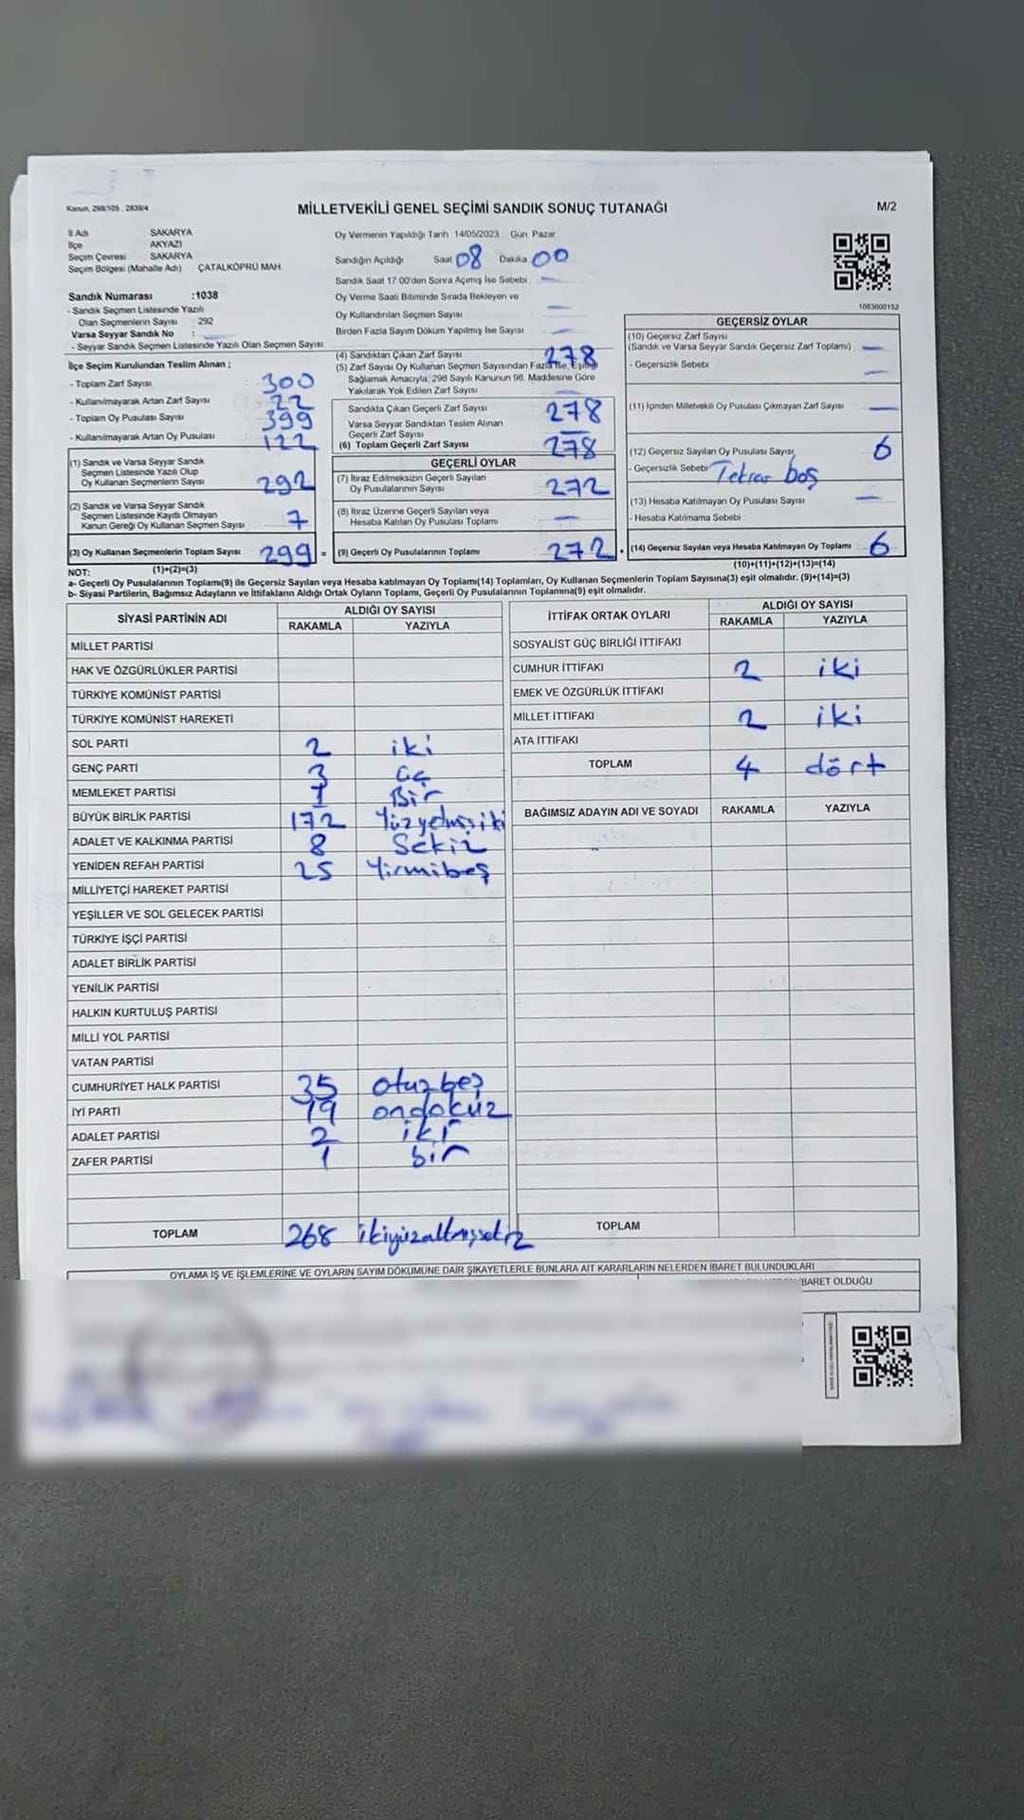 Kanun, 298/105 , 2839/4
MİLLETVEKİLİ GENEL SEÇİMİ SANDIK SONUÇ TUTANAĞI
M/2
İl Adı SAKARYA
İlçe AKYAZI
Seçim Çevresi SAKARYA
Seçim Bölgesi (Mahalle Adı) ÇATALKÖPRÜ MAH.
Sandık Numarası :1038
- Sandık Seçmen Listesinde Yazılı
Olan Seçmenlerin Sayısı 292
Varsa Seyyar Sandık No :
- Seyyar Sandık Seçmen Listesinde Yazılı Olan Seçmen Sayısı:
Oy Vermenin Yapıldığı Tarih 14/05/2023 Gün: Pazar
Sandığın Açıldığı Saat 08 Dakika 00
Sandık Saat 17.00'den Sonra Açımış İse Sebebi : —
Oy Verme Saati Bitiminde Sırada Bekleyen ve
Oy Kullandırılan Seçmen Sayısı —
Birden Fazla Sayım Döküm Yapılmış İse Sayısı —
1083600152
İlçe Seçim Kurulundan Teslim Alınan ;
- Toplam Zarf Sayısı : 300
- Kullanılmayarak Artan Zarf Sayısı : 22
- Toplam Oy Pusulası Sayısı : 399
- Kullanılmayarak Artan Oy Pusulası : 122
(1) Sandık ve Varsa Seyyar Sandık
Seçmen Listesinde Yazılı Olup
Oy Kullanan Seçmenlerin Sayısı 292
(2) Sandık ve Varsa Seyyar Sandık
Seçmen Listesinde Kayıtlı Olmayan
Kanun Gereği Oy Kullanan Seçmen Sayısı 7
(3) Oy Kullanan Seçmenlerin Toplam Sayısı 299 =
(1)+(2)=(3)
(4) Sandıktan Çıkan Zarf Sayısı 278
(5) Zarf Sayısı Oy Kullanan Seçmen Sayısından Fazla İse, Eşitliği
Sağlamak Amacıyla, 298 Sayılı Kanunun 98. Maddesine Göre
Yakılarak Yok Edilen Zarf Sayısı —
Sandıkta Çıkan Geçerli Zarf Sayısı 278
Varsa Seyyar Sandıktan Teslim Alınan
Geçerli Zarf Sayısı —
(6) Toplam Geçerli Zarf Sayısı 278
GEÇERLİ OYLAR
(7) İtiraz Edilmeksizin Geçerli Sayılan
Oy Pusulalarının Sayısı 272
(8) İtiraz Üzerine Geçerli Sayılan veya
Hesaba Katılan Oy Pusulası Toplamı —
(9) Geçerli Oy Pusulalarının Toplamı 272 +
GEÇERSİZ OYLAR
(10) Geçersiz Zarf Sayısı
(Sandık ve Varsa Seyyar Sandık Geçersiz Zarf Toplamı) —
- Geçersizlik Sebebi —
(11) İçinden Milletvekili Oy Pusulası Çıkmayan Zarf Sayısı —
(12) Geçersiz Sayılan Oy Pusulası Sayısı 6
- Geçersizlik Sebebi boş
(13) Hesaba Katılmayan Oy Pusulası Sayısı —
- Hesaba Katılmama Sebebi :
(14) Geçersiz Sayılan veya Hesaba Katılmayan Oy Toplamı 6
(10)+(11)+(12)+(13)=(14)
NOT:
a- Geçerli Oy Pusulalarının Toplamı(9) ile Geçersiz Sayılan veya Hesaba katılmayan Oy Toplamı(14) Toplamları, Oy Kullanan Seçmenlerin Toplam Sayısına(3) eşit olmalıdır. (9)+(14)=(3)
b- Siyasi Partilerin, Bağımsız Adayların ve İttifakların Aldığı Ortak Oyların Toplamı, Geçerli Oy Pusulalarının Toplamına(9) eşit olmalıdır.
SİYASİ PARTİNİN ADI ALDIĞI OY SAYISI
RAKAMLA YAZIYLA
MİLLET PARTİSİ
HAK VE ÖZGÜRLÜKLER PARTİSİ
TÜRKİYE KOMÜNİST PARTİSİ
TÜRKİYE KOMÜNİST HAREKETİ
SOL PARTİ 2 iki
GENÇ PARTİ 3 üç
MEMLEKET PARTİSİ 1 Bir
BÜYÜK BİRLİK PARTİSİ 172 Yüzyetmişiki
ADALET VE KALKINMA PARTİSİ 8 Sekiz
YENİDEN REFAH PARTİSİ 25 Yirmibeş
MİLLİYETÇİ HAREKET PARTİSİ
YEŞİLLER VE SOL GELECEK PARTİSİ
TÜRKİYE İŞÇİ PARTİSİ
ADALET BİRLİK PARTİSİ
YENİLİK PARTİSİ
HALKIN KURTULUŞ PARTİSİ
MİLLİ YOL PARTİSİ
VATAN PARTİSİ
CUMHURİYET HALK PARTİSİ 35 otuzbeş
İYİ PARTİ 19 ondokuz
ADALET PARTİSİ 2 iki
ZAFER PARTİSİ 1 bir
TOPLAM 268 ikiyüzaltmışsekiz
İTTİFAK ORTAK OYLARI ALDIĞI OY SAYISI
RAKAMLA YAZIYLA
SOSYALİST GÜÇ BİRLİĞİ İTTİFAKI
CUMHUR İTTİFAKI 2 iki
EMEK VE ÖZGÜRLÜK İTTİFAKI
MİLLET İTTİFAKI 2 iki
ATA İTTİFAKI
TOPLAM 4 dört
BAĞIMSIZ ADAYIN ADI VE SOYADI RAKAMLA YAZIYLA
TOPLAM
OYLAMA İŞ VE İŞLEMLERİNE VE OYLARIN SAYIM DÖKÜMÜNE DAİR ŞİKAYETLERLE BUNLARA AİT KARARLARIN NELERDEN İBARET BULUNDUKLARI
İBARET OLDUĞU